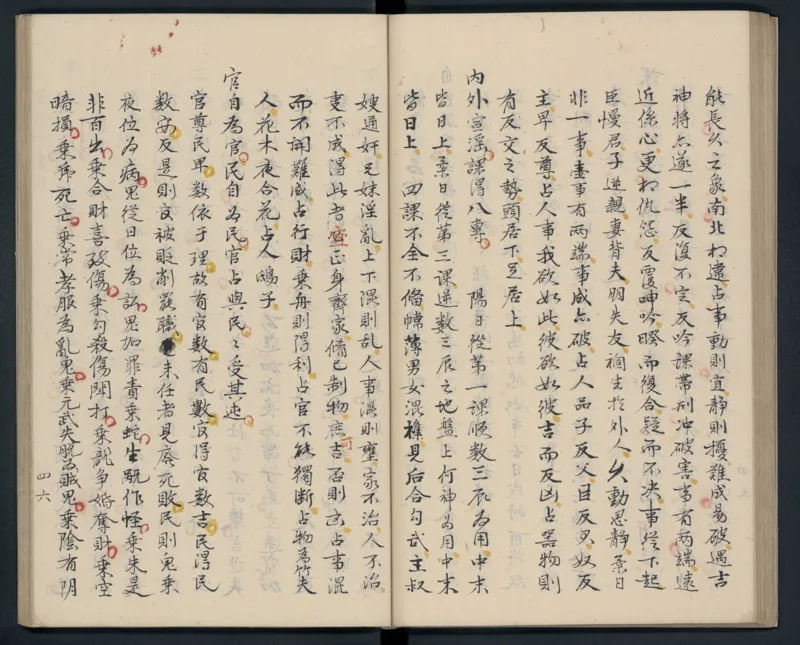 能長久之象南北相違占事動則宜靜則擾難成易破遇吉
神將亦遂一半反復不定反吟課帶刑冲破害事有兩端遠
近係心更相仇怨反覆呻吟暌而後合疑而不决事從下起
臣慢君子逆親妻背夫朋失友禍生於外人久動思靜柔日
非一事壹事有兩端事成亦破占人品子反父臣反君奴反
主卑反尊占人事我欲如此彼欲如彼吉而反凶占器物則
有反文之勢頭居下足居上
内外宣淫課得八專　陽日從第一課順數三辰為用中末
皆日上柔日從第三課逆數三辰之地盤上何神為用中末
皆日上　四課不全不俻幃薄男女混襍見后合勾武主叔
嫂通奸兄妹淫亂上下混則亂人事混則壅家不治人不治
吏不成得此者宜正身齊家脩己制物庶可吉否則凶占事混
而不開難成占行財乗舟則得利占官不能獨斷占物為竹夫
人花木夜合花占人鴇子
官自為官民自為民官占與民民受其迍
官尊民卑数依于理故有官数有民數官得官数吉民得民
数安反是則官被貶削罷職未任者見廢死敗民則鬼乗
夜位為病鬼從日位為訟鬼加罪責乗蛇生翫作怪乗朱是
非百出乗合財喜致傷乗勾殺傷鬪打乗龍争婚奪財乗空
暗損乗虎死亡乗常孝服為亂鬼乗元武失脱為賊鬼乗陰有阴
四六